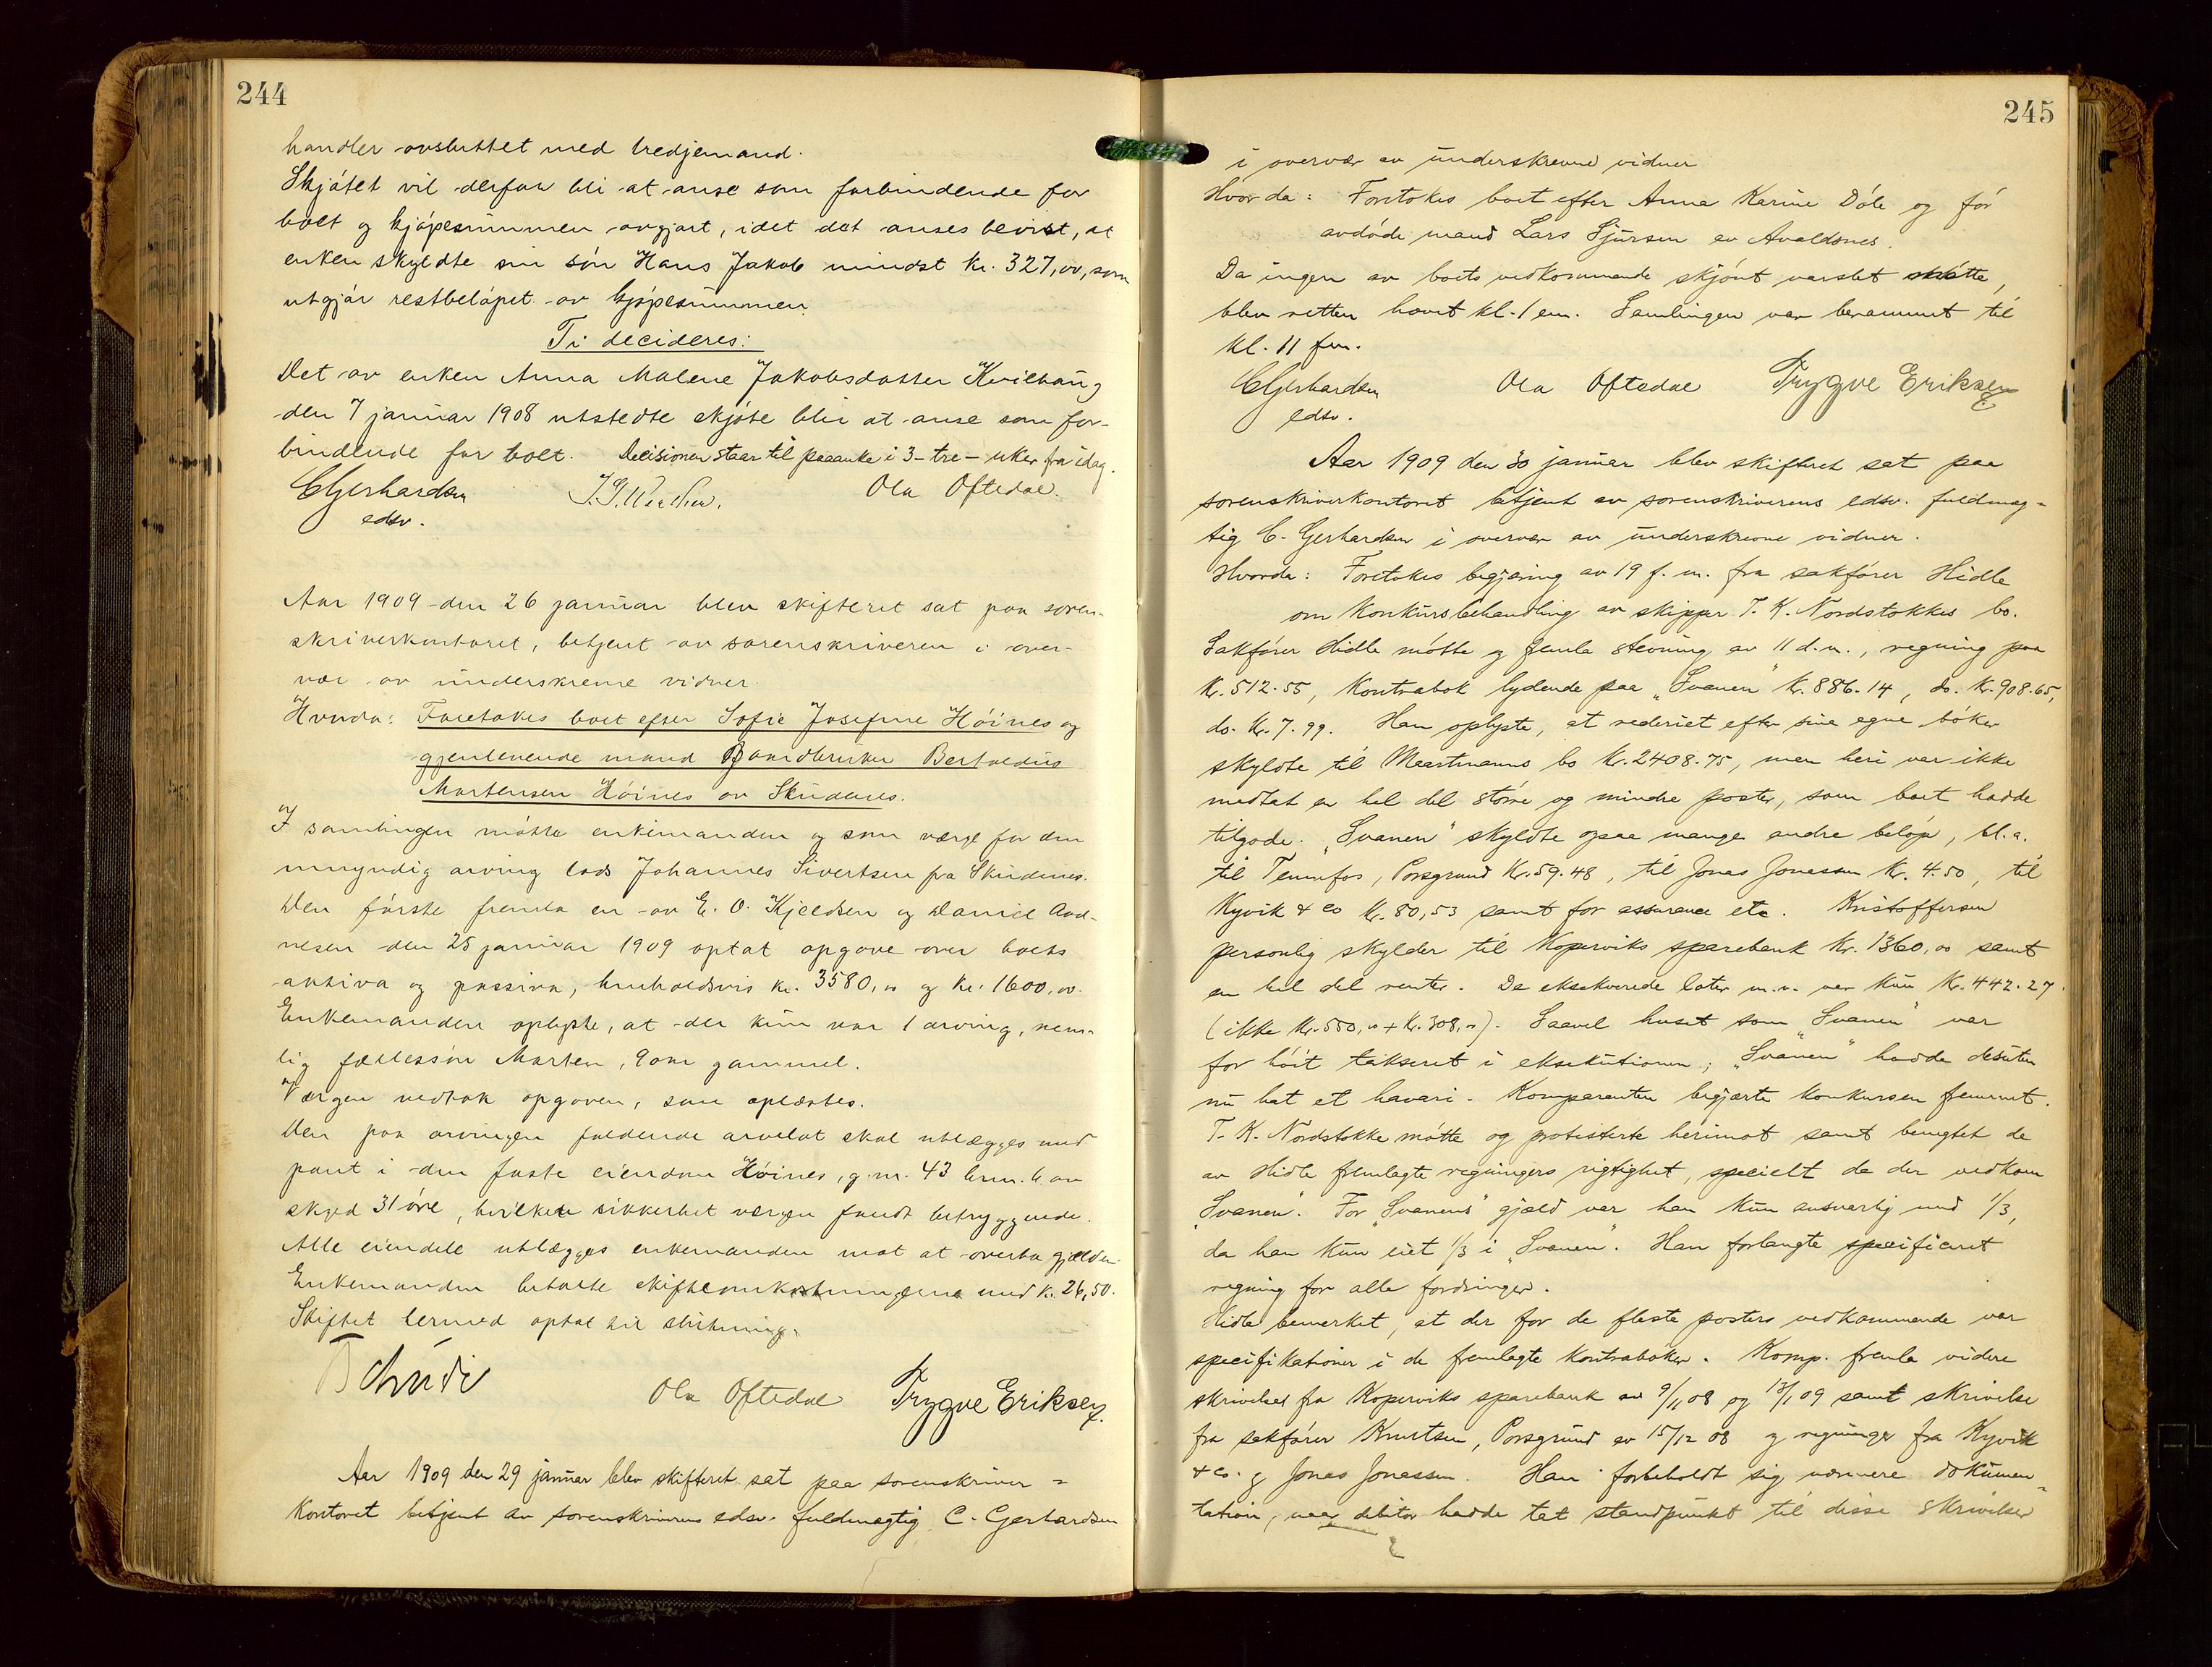 244
handler avsluttet med tredjemand.
Skjötet vil derfor bli at anse som forbindende for
boet og kjöpesummen avgjort, idet det anses bevist, at
enken skyldte sin sön Hans Jakob mindst kr. 327,00, som
utgjör restbelöpet av kjöpesummen.
Ti decideres:
Det av enken Anna Malene Jakobsdatter Kvilhaug
den 7 januar 1908 utstedte skjöte blir at anse som for-
bindende for boet. Decisionen staar til paaanke i 3 - tre - uker fra idag.
CGerhardsen Ola Oftedal.
edsv.
Aar 1909 den 26 januar blev skifteret sat paa soren-
skriverkontoret, betjent av sorenskriveren i over-
vær av underskrevne vidner.
Hvorda: Foretokes boet efter Sofie Josefine Höines og
gjenlevende mand Gaardbruker Bertoldus
Mortensen Höines av Skudenes.
I samlingen mötte enkemanden og som værge for den
umyndig arving lods Johannes Sivertsen fra Skudenes.
Den förste fremla en av E. O. Kjeldsen og Daniel Aad-
nesen den 25 januar 1909 optat opgave over boets
aktiva og passiva, henholdsvis kr. 3580,00 og kr. 1600,00.
Enkemanden oplyste, at der kun var 1 arving, nem-
lig fællessön Morten, 9 aar gammel.
Værgen vedtok opgaven, som oplæstes.
Den paa arvingen faldende arvelot skal utlægges med
pant i den faste eiendom Höines, g.nr. 43 brnr. 6 av
skyld 31 öre, hvilken sikkerhet værgen fandt betryggende.
Alle eiendele utlægges enkemanden mot at overta gjælden.
Enkemanden betalte skifteomkostningene med kr. 26,50.
Skiftet hermed optat til slutning.
Ola Oftedal Trygve Eriksen
Aar 1909 den 29 januar blev skifteret sat paa sorenskriver=
kontoret betjent av sorenskriverens edsv. fuldmegtig C. Gerhardsen
245
i overvær av underskrevne vidner
Hvorda: Foretokes boet efter Anna Karine Döle og för
avdöde mand Lars Sjursen av Avaldsnes.
Da ingen av boets vedkommende skjönt varslet mötte,
blev retten hævet kl. 1 em. Samlingen var berammet til
kl. 11 fm.
CGerhardsen Ola Oftedal Trygve Eriksen
edsv.
Aar 1909 den 30 januar blev skifteret sat paa
sorenskriverkontoret betjent av sorenskriverens edsv. fuldmeg=
tig C. Gerhardsen i overvær av underskrevne vidner.
Hvorda: Foretokes begjæring av 19 f. m. fra sakförer Hidle
om konkursbehandling av skipper T. K. Nordstokkes bo.
Sakförer Hidle mötte og fremla stevning av 11 d.m., regning paa
kr. 512.55, kontrabok lydende paa „Svanen" kr. 886.14, do. kr. 908.65,
do. kr. 7.99. Han oplyste, at rederiet efter sine egne böker
skyldte til Maartmanns bo kr. 2408.75, men heri var ikke
medtat en hel del större og mindre poster, som boet hadde
tilgode. „Svanen" skyldte ogsaa mange andre belöp, bl.a.
til Tennfos, Porsgrund kr. 59.48, til Jonas Jonassen kr. 4.50, til
Kyvik & Co kr. 80,53 samt for assurance etc. Kristoffersen
personlig skylder til Koperviks sparebank kr. 1360,00 samt
en hel del renter. De eksekverede loter m.v. var kun kr. 442.27
(ikke kr. 550,00 + kr. 308,00). Saavel huset som „Svanen" var
for höit takseret i eksekutionen; „Svanen" hadde desuten
nu hat et havari. Komparenten begjærte konkursen fremmet.
T. K. Nordstokke mötte og protesterte herimot samt benegtet de
av Hidle fremlagte regningers rigtighet, specielt de der vedkom
„Svanen". For „Svanens" gjæld var han kun ansvarlig med 1/3,
da han kun eiet 1/3 i „Svanen". Han forlangte specificeret
regning for alle fordringer.
Hidle bemerket, at der for de fleste posters vedkommende var
specifikationer i de fremlagte kontraböker. Komp. fremla videre
skrivelser fra Koperviks sparebank av 9/11 08 og 13/1 09 samt skrivelse
fra sakförer Knutsen, Porsgrund av 15/12 08 og regninger fra Kyvik
& Co. og Jonas Jonassen. Han forbeholdt sig nærmere dokumen=
tation, naar debitor hadde tat standpunkt til disse skrivelser